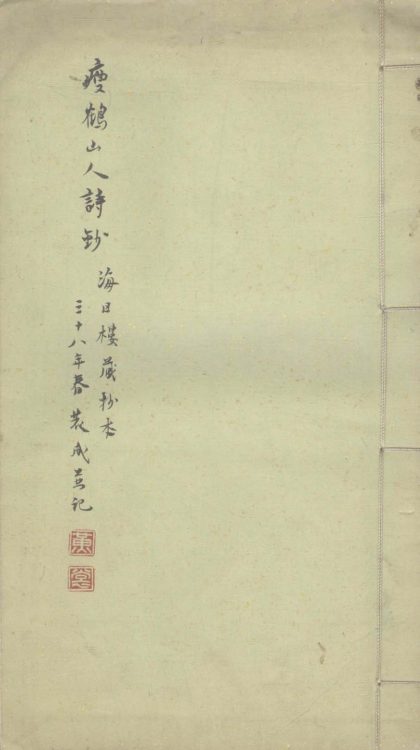 瘦鶴山人詩鈔
海日樓藏抄本
三十八年春裝成並記